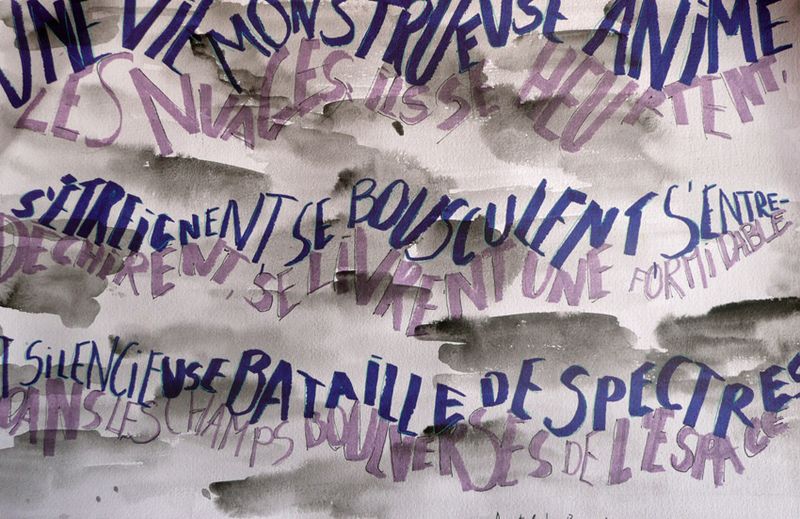 UNE VIE MONSTRUEUSE ANIME
LES NUAGES, ILS SE HEURTENT,
S'ÉTREIGNENT SE BOUSCULENT S'ENTRE-
DÉCHIRENT, SE LIVRENT UNE FORMIDABLE
ET SILENCIEUSE BATAILLE DE SPECTRES
DANS LES CHAMPS BOULVERSES DE L'ESPACE